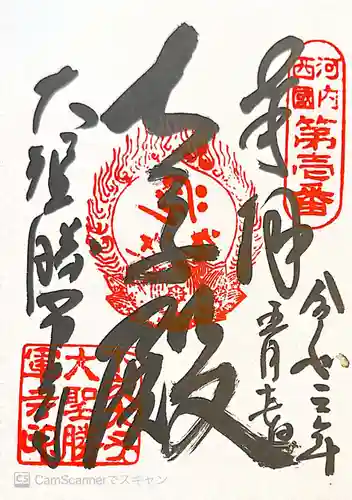 河内
西國
第壱番
奉拝
令和三年
五月
太子殿
大聖勝軍寺
大聖勝
軍寺印
CS CamScannerでスキャン